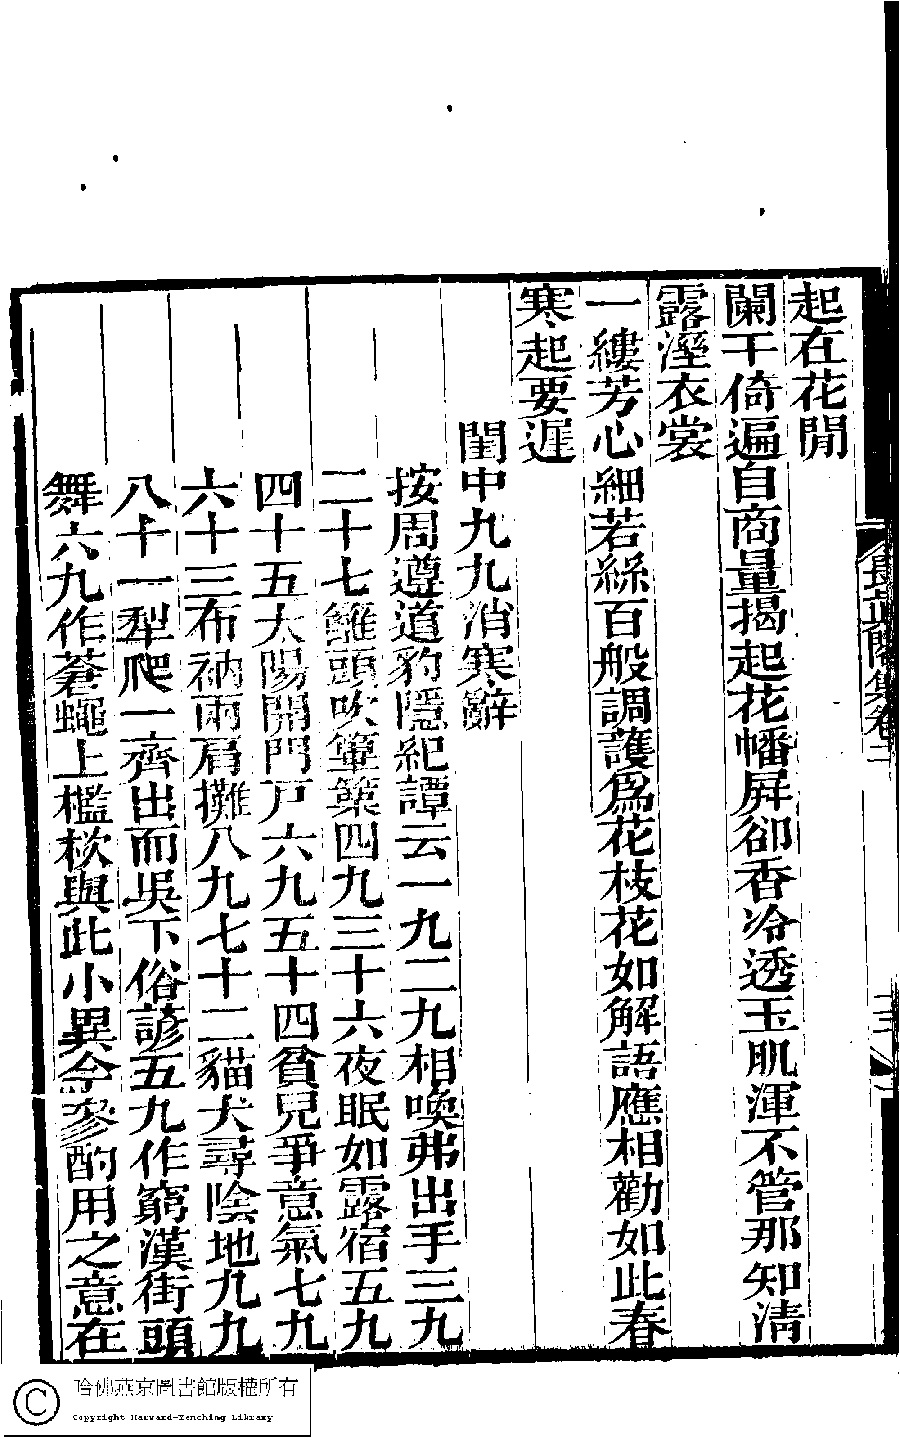 起在花閒
闌干倚遍自商量揭起花幡屏卻香冷透玉肌渾不管那知清
露溼衣裳
一縷芳心細若絲百般調護爲花枝花如解語應相勸如此春
寒起要遲
閨中九九消寒辭
按周遵道豹隱紀譚云一九二九相喚弗出手三九
二十七籬頭吹篳篥四九三十六夜眠如露宿五九
四十五太陽開門戸六九五十四貧兒爭意氣七九
六十三布衲兩肩攤八九七十二貓犬尋陰地九九
八十一犁爬一齊出而吳下俗諺五九作窮漢街頭
舞六九作蒼蠅上檻栨與此小異今參酌用之意在
長真閣集卷二
哈佛燕京圖書館版權所有
Copyright Harvard-Yenching Library